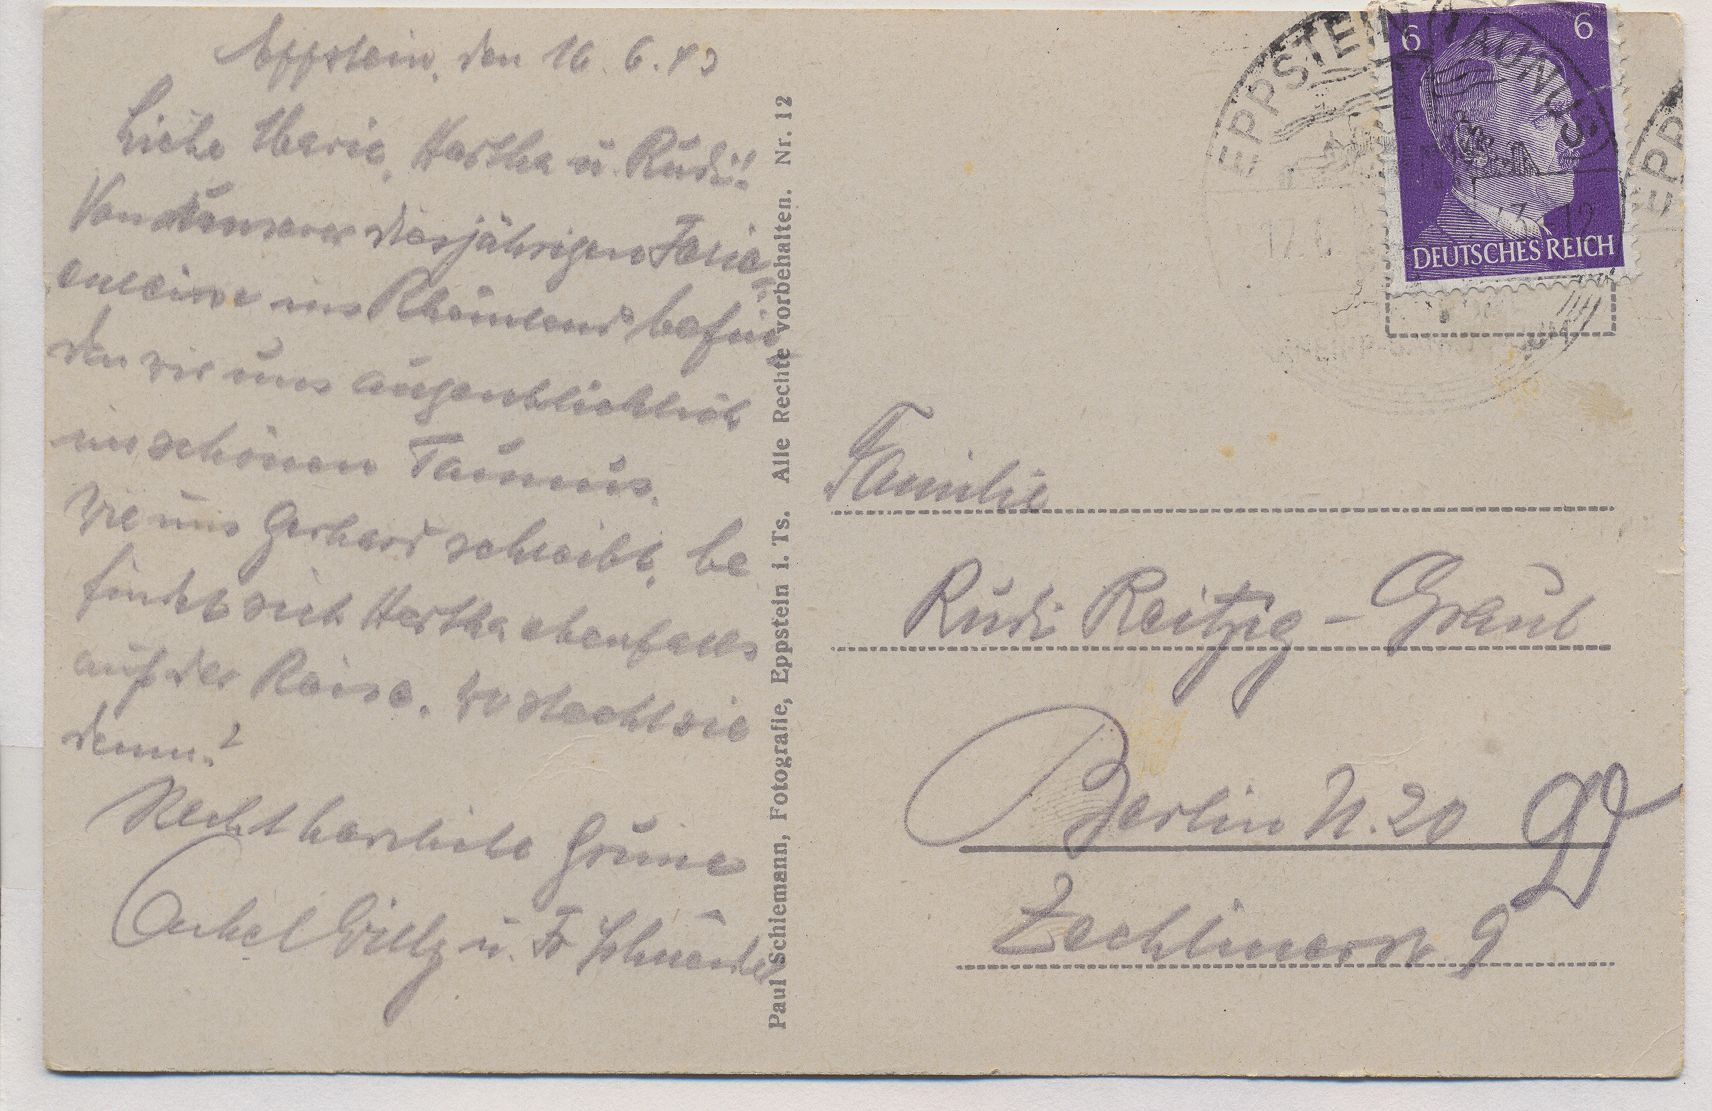 Eppstein, den 16.6.43
Liebe Marie, Hertha u. Rudi!
Von unserer diesjährigen Ferie
enreise ins Rheinland befin
den wir uns augenblicklich
im schönen Taunus.
Wie uns Gerhard schreibt, be
findet sich Hertha ebenfalls
auf der Reise. Wo steckt sie
denn?
Recht herzliche Grüsse
Onkel Willy u. Fr
Paul Schiemann, Fotografie, Eppstein i. Ts. Alle Rechte vorbehalten. Nr. 12
EPPSTEIN (TAUNUS)
6 6
DEUTSCHES REICH
Familie
Rudi Reitzig - Graul
Berlin N. 20
Zechlinerstr 9